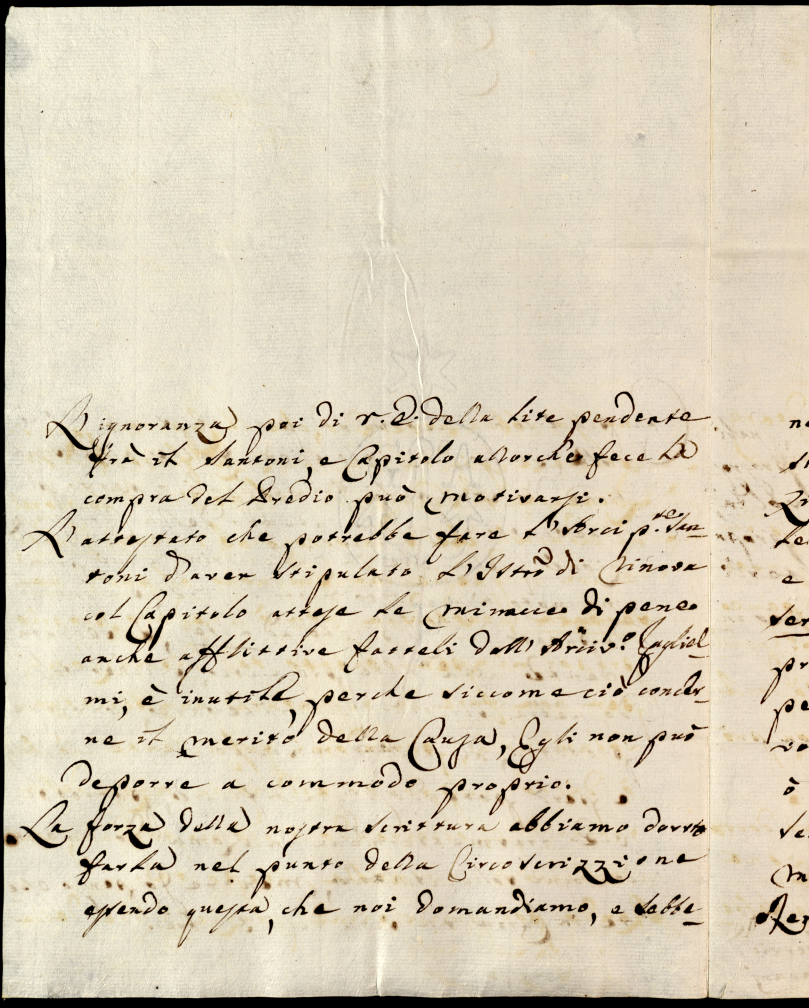 L'ignoranza poi di V. E. della lite pendente
trà il Santoni, e Capitolo allorche fece la
compra del Predio può motivarsi.
L'attestato che potrebbe fare l'Arcip.te San-
toni d'aver stipulato l'Istro di
col Capitolo attese le minacce di pene
anche afflittive fatteli dall' Arciv.o Gugliel-
mi, è inutile, perche siccome ciò concer-
ne il merito della Causa, Egli non può
deporre a commodo proprio.
La forza della nostra scrittura abbiamo dovuto
farla nel punto della Circoscrizzione
essendo questa, che noi domandiamo, e sebbe-